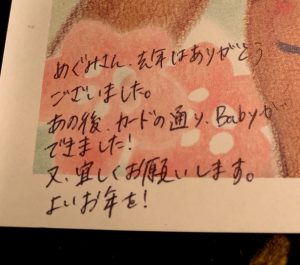 めぐみさん、去年はありがとう
ございました。
あの後、カードの通り、Babyが
できました!
又、宜しくお願いします。
よいお年を!